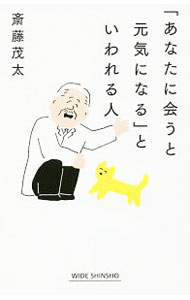 「あなたに会うと
元気になる」と
いわれる人
斎藤茂太
WIDE SHINSHO